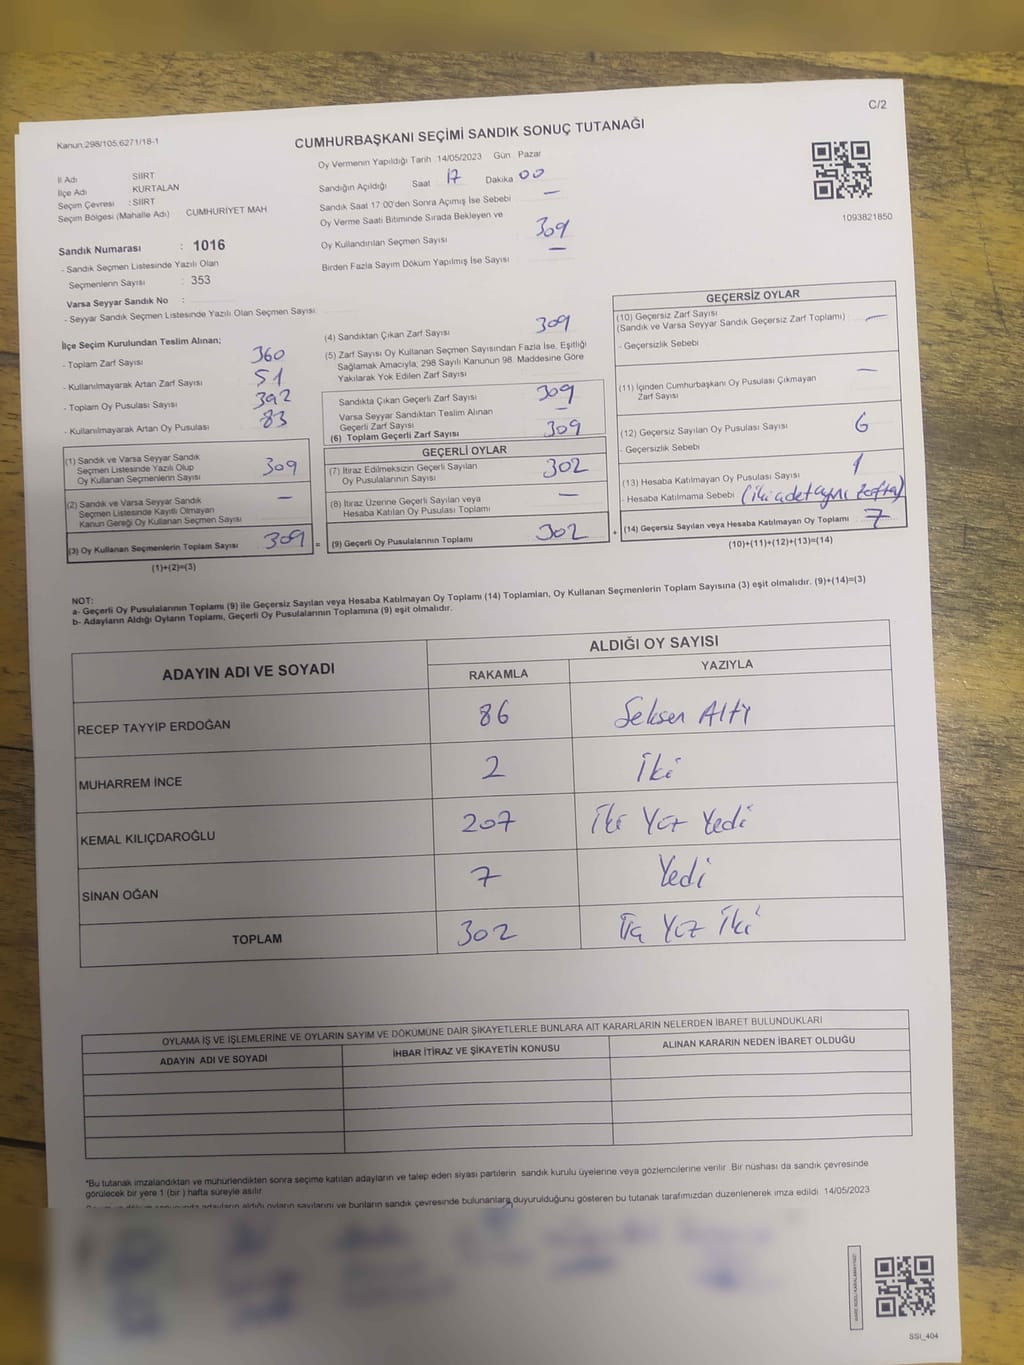 C/2
Kanun:298/105,6271/18-1
CUMHURBAŞKANI SEÇİMİ SANDIK SONUÇ TUTANAĞI
Oy Vermenin Yapıldığı Tarih 14/05/2023 Gün Pazar
İl Adı SİİRT
İlçe Adı KURTALAN
Seçim Çevresi : SİİRT
Seçim Bölgesi (Mahalle Adı) CUMHURİYET MAH
Sandığın Açıldığı Saat 17 Dakika 00
Sandık Saat 17:00'den Sonra Açımış İse Sebebi —
Oy Verme Saati Bitiminde Sırada Bekleyen ve
Oy Kullandırılan Seçmen Sayısı 309
Birden Fazla Sayım Döküm Yapılmış İse Sayısı —
1093821850
Sandık Numarası : 1016
- Sandık Seçmen Listesinde Yazılı Olan
Seçmenlerin Sayısı : 353
Varsa Seyyar Sandık No :
- Seyyar Sandık Seçmen Listesinde Yazılı Olan Seçmen Sayısı:
İlçe Seçim Kurulundan Teslim Alınan;
- Toplam Zarf Sayısı 360
- Kullanılmayarak Artan Zarf Sayısı 51
- Toplam Oy Pusulası Sayısı 392
- Kullanılmayarak Artan Oy Pusulası 83
(1) Sandık ve Varsa Seyyar Sandık
Seçmen Listesinde Yazılı Olup
Oy Kullanan Seçmenlerin Sayısı 309
(2) Sandık ve Varsa Seyyar Sandık
Seçmen Listesinde Kayıtlı Olmayan
Kanun Gereği Oy Kullanan Seçmen Sayısı —
(3) Oy Kullanan Seçmenlerin Toplam Sayısı 309 =
(1)+(2)=(3)
(4) Sandıktan Çıkan Zarf Sayısı 309
(5) Zarf Sayısı Oy Kullanan Seçmen Sayısından Fazla İse, Eşitliği
Sağlamak Amacıyla, 298 Sayılı Kanunun 98. Maddesine Göre
Yakılarak Yok Edilen Zarf Sayısı
Sandıkta Çıkan Geçerli Zarf Sayısı 309
Varsa Seyyar Sandıktan Teslim Alınan
Geçerli Zarf Sayısı —
(6) Toplam Geçerli Zarf Sayısı 309
GEÇERLİ OYLAR
(7) İtiraz Edilmeksizin Geçerli Sayılan
Oy Pusulalarının Sayısı 302
(8) İtiraz Üzerine Geçerli Sayılan veya
Hesaba Katılan Oy Pusulası Toplamı —
(9) Geçerli Oy Pusulalarının Toplamı 302 +
GEÇERSİZ OYLAR
(10) Geçersiz Zarf Sayısı
(Sandık ve Varsa Seyyar Sandık Geçersiz Zarf Toplamı) —
- Geçersizlik Sebebi
(11) İçinden Cumhurbaşkanı Oy Pusulası Çıkmayan
Zarf Sayısı —
(12) Geçersiz Sayılan Oy Pusulası Sayısı 6
- Geçersizlik Sebebi
(13) Hesaba Katılmayan Oy Pusulası Sayısı 1
- Hesaba Katılmama Sebebi (iki adet aynı zarfta)
(14) Geçersiz Sayılan veya Hesaba Katılmayan Oy Toplamı 7
(10)+(11)+(12)+(13)=(14)
NOT:
a- Geçerli Oy Pusulalarının Toplamı (9) ile Geçersiz Sayılan veya Hesaba Katılmayan Oy Toplamı (14) Toplamları, Oy Kullanan Seçmenlerin Toplam Sayısına (3) eşit olmalıdır. (9)+(14)=(3)
b- Adayların Aldığı Oyların Toplamı, Geçerli Oy Pusulalarının Toplamına (9) eşit olmalıdır.
ADAYIN ADI VE SOYADI
ALDIĞI OY SAYISI
RAKAMLA YAZIYLA
RECEP TAYYİP ERDOĞAN 86 Seksen Altı
MUHARREM İNCE 2 İki
KEMAL KILIÇDAROĞLU 207 İki Yüz Yedi
SİNAN OĞAN 7 Yedi
TOPLAM 302 Üç Yüz İki
OYLAMA İŞ VE İŞLEMLERİNE VE OYLARIN SAYIM VE DÖKÜMÜNE DAİR ŞİKAYETLERLE BUNLARA AİT KARARLARIN NELERDEN İBARET BULUNDUKLARI
ADAYIN ADI VE SOYADI İHBAR İTİRAZ VE ŞİKAYETİN KONUSU ALINAN KARARIN NEDEN İBARET OLDUĞU
*Bu tutanak imzalandıktan ve mühürlendikten sonra seçime katılan adayların ve talep eden siyasi partilerin sandık kurulu üyelerine veya gözlemcilerine verilir. Bir nüshası da sandık çevresinde
görülecek bir yere 1 (bir) hafta süreyle asılır.
adayların aldığı oyların sayılarını ve bunların sandık çevresinde bulunanlara duyurulduğunu gösteren bu tutanak tarafımızdan düzenlenerek imza edildi. 14/05/2023
SSI_404